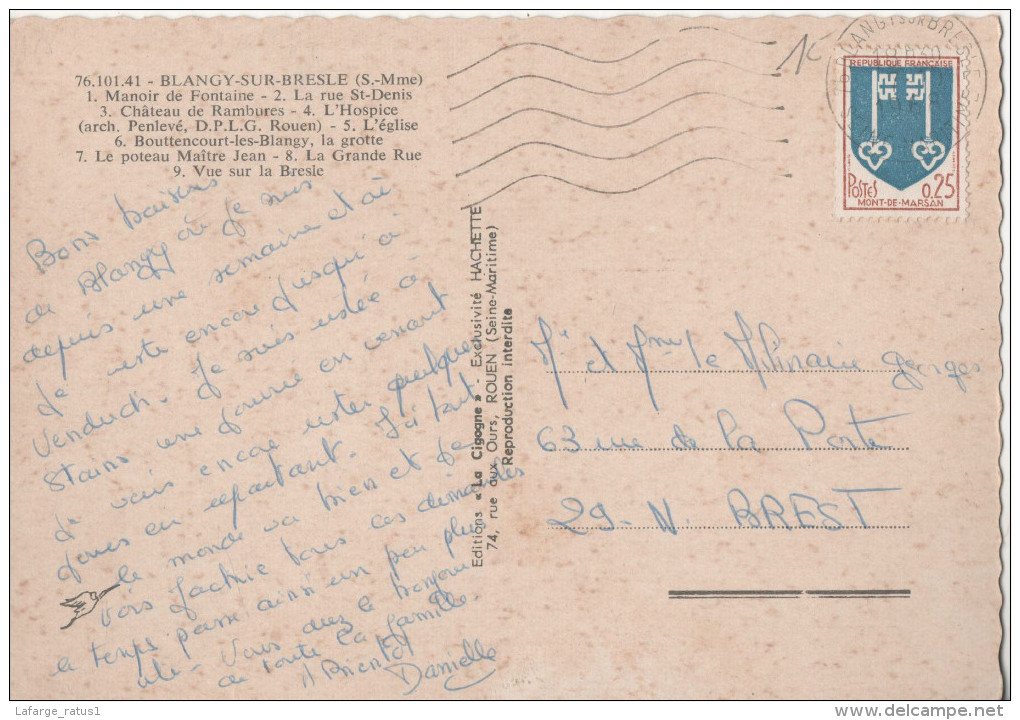 76.101.41 - BLANGY-SUR-BRESLE (S.-Mme)
1. Manoir de Fontaine - 2. La rue St-Denis
3. Château de Rambures - 4. L'Hospice
(arch. Penlevé, D.P.L.G. Rouen) - 5. L'église
6. Bouttencourt-les-Blangy, la grotte
7. Le poteau Maître Jean - 8. La Grande Rue
9. Vue sur la Bresle
Bons baisers
de Blangy où je suis
depuis une semaine et où
je reste encore jusqu'à
vendredi. Je suis restée à
Stains une journée en venant
je vais encore rester quelques
jours en repartant. Ici tout
le monde va bien et je
vois Jackie tous les dimanches
le temps passe ainsi un peu plus
vite. Vous avez le bonjour
de toute la famille.
A Bientôt
Danielle
Editions « La Cigogne » - Exclusivité HACHETTE
74, rue aux Ours, ROUEN (Seine-Maritime)
Reproduction interdite
1€
BLANGY SUR BRESLE
REPUBLIQUE FRANÇAISE
POSTES 0,25
MONT-DE-MARSAN
Mr et Mme le Georges
63 rue de La Porte
29-N. BREST
Lafarge_ratus1
delcampe.net